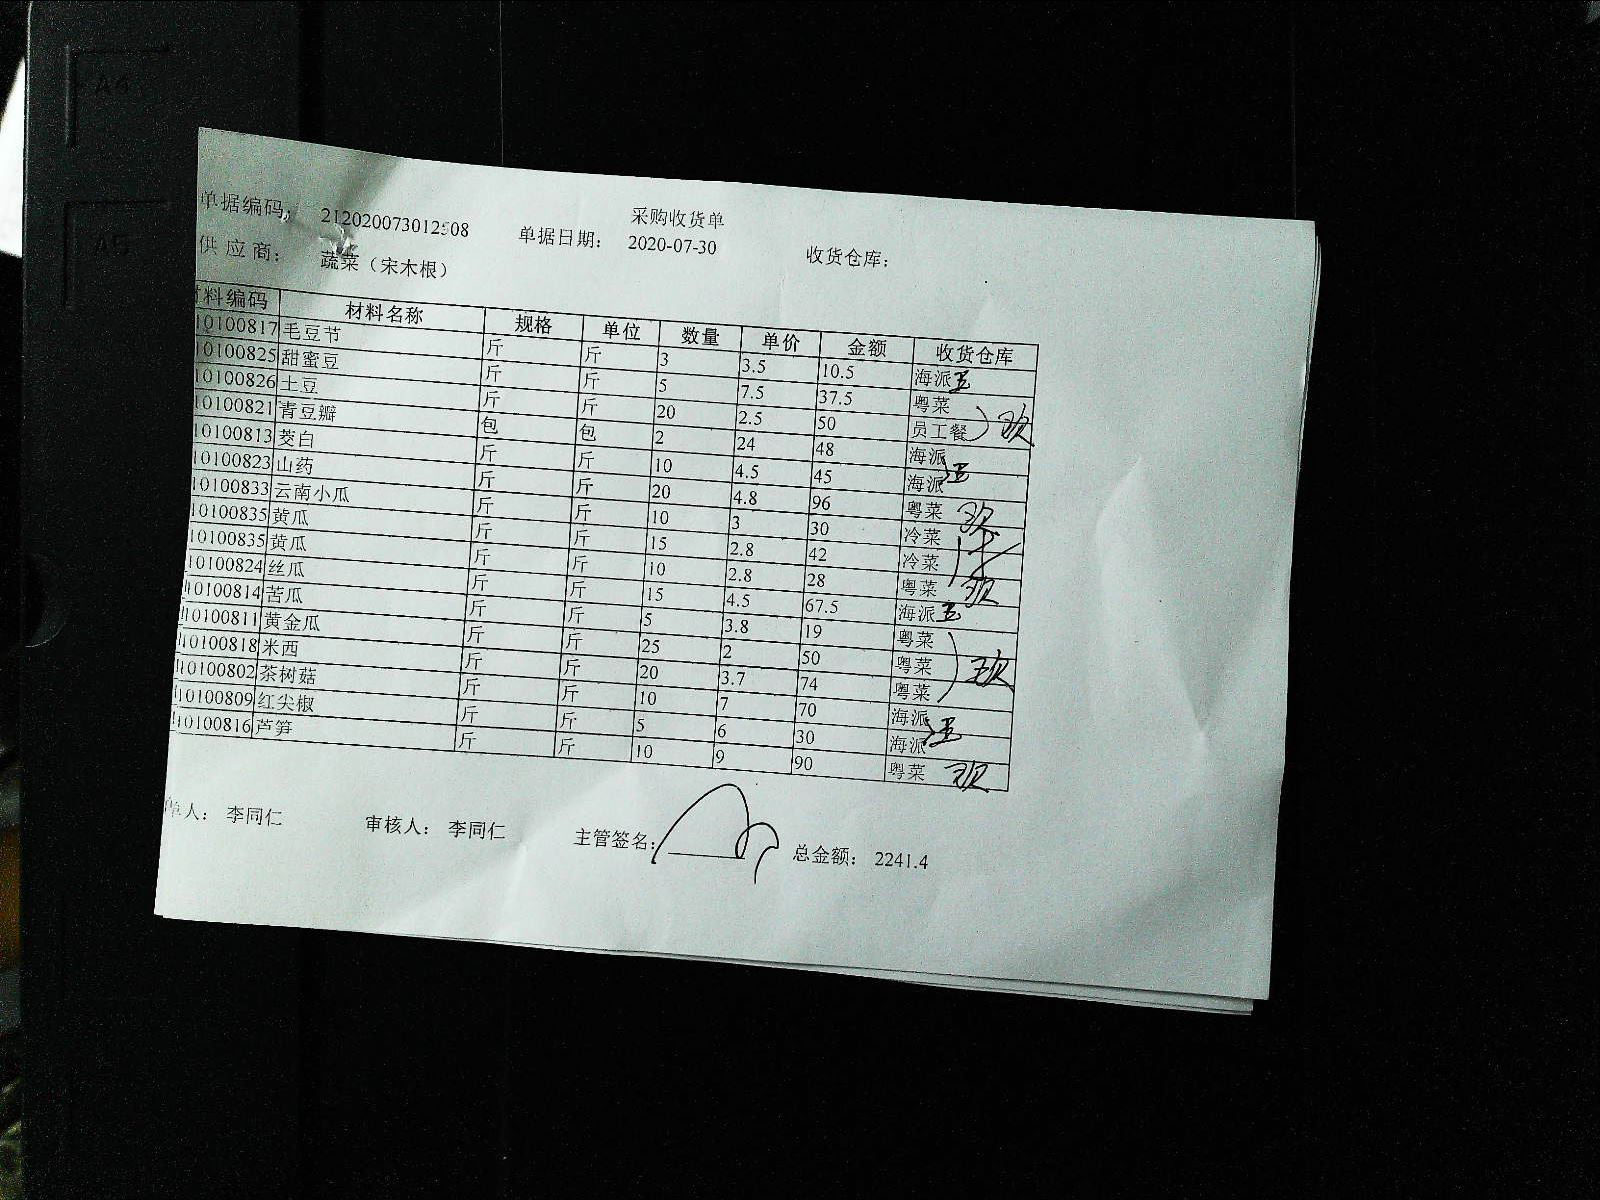 采购收货单
单据编码： 212020073012508 单据日期： 2020-07-30 收货仓库：
供应商： 蔬菜（宋木根）
材料编码 材料名称 规格 单位 数量 单价 金额 收货仓库
10100817 毛豆节 斤 斤 3 3.5 10.5 海派
10100825 甜蜜豆 斤 斤 5 7.5 37.5 粤菜
10100826 土豆 斤 斤 20 2.5 50 员工餐
10100821 青豆瓣 包 包 2 24 48 海派
10100813 茭白 斤 斤 10 4.5 45 海派
10100823 山药 斤 斤 20 4.8 96 粤菜
10100833 云南小瓜 斤 斤 10 3 30 冷菜
10100835 黄瓜 斤 斤 15 2.8 42 冷菜
10100835 黄瓜 斤 斤 10 2.8 28 粤菜
10100824 丝瓜 斤 斤 15 4.5 67.5 海派
10100814 苦瓜 斤 斤 5 3.8 19 粤菜
10100811 黄金瓜 斤 斤 25 2 50 粤菜
10100818 米西 斤 斤 20 3.7 74 粤菜
10100802 茶树菇 斤 斤 10 7 70 海派
10100809 红尖椒 斤 斤 5 6 30 海派
10100816 芦笋 斤 斤 10 9 90 粤菜
单人： 李同仁 审核人： 李同仁 主管签名： 总金额： 2241.4
A4
A5